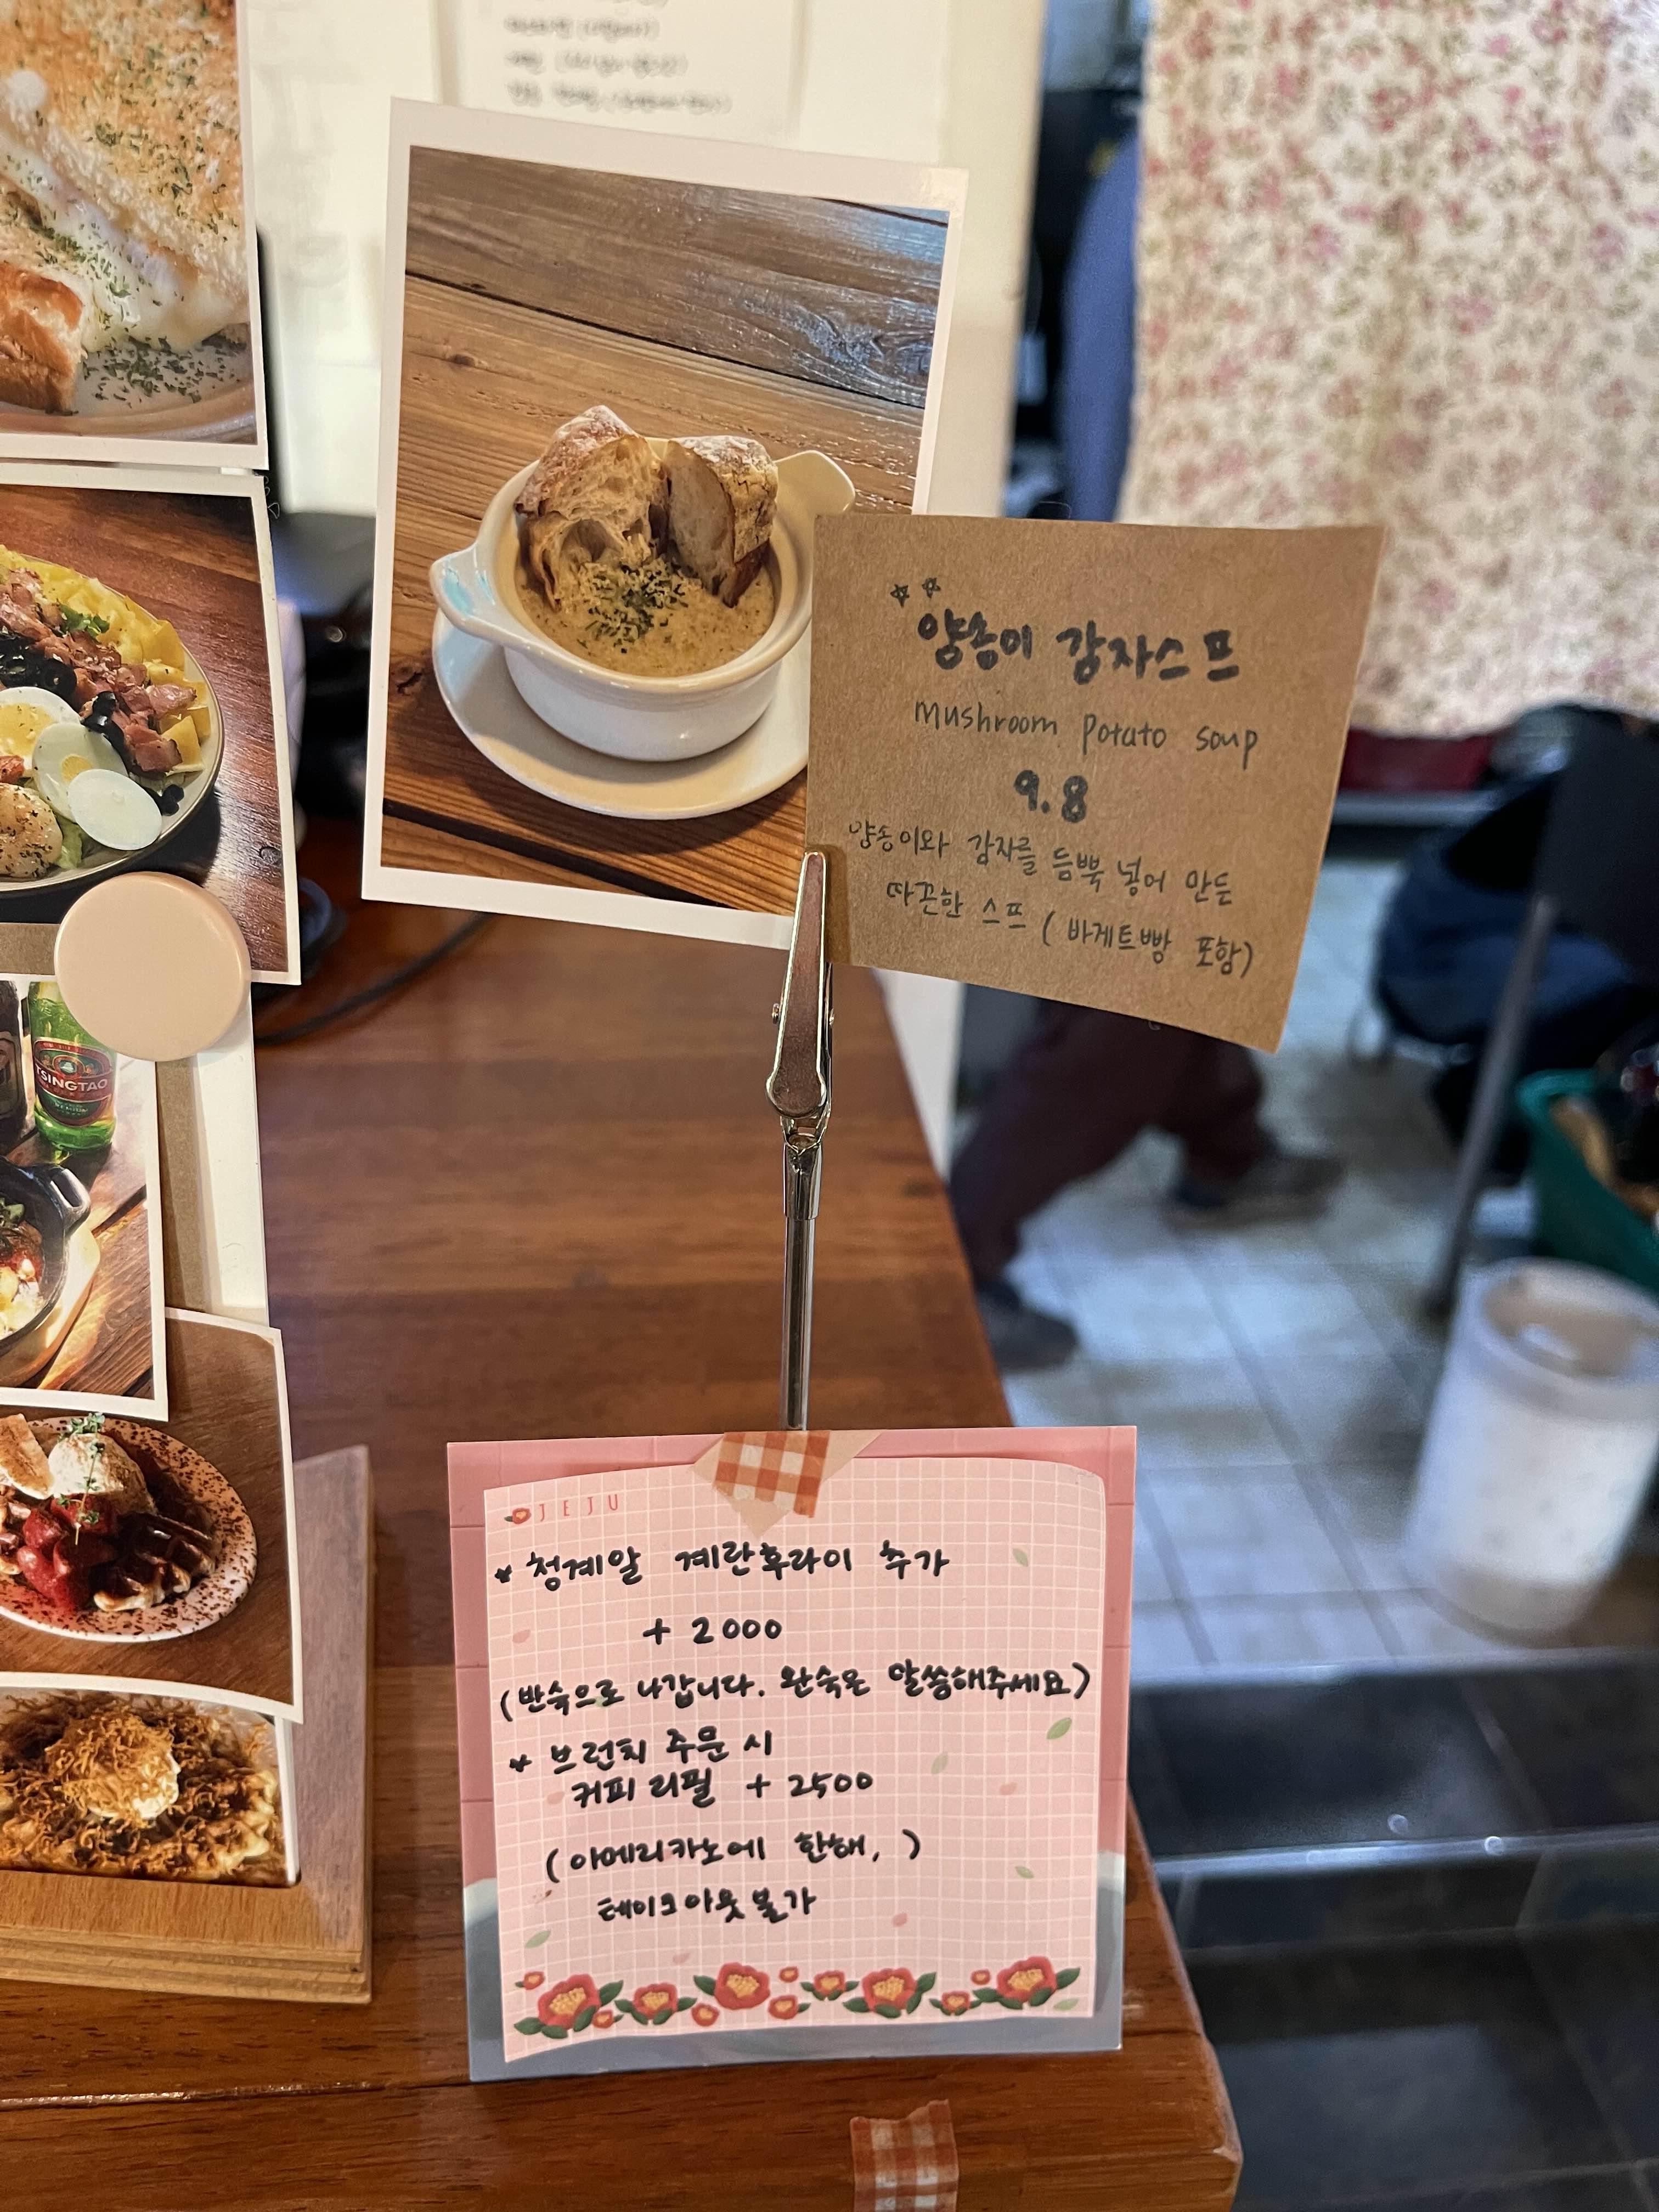 양송이 감자스프
mushroom potato soup
9.8
양송이와 감자를 듬뿍 넣어 만든
따끈한 스프 (바게트빵 포함)
TSINGTAO
JEJU
* 청계알 계란후라이 추가
+ 2000
(반숙으로 나갑니다. 완숙은 말씀해주세요)
* 브런치 주문 시
커피 리필 + 2500
(아메리카노에 한해, )
테이크아웃 불가